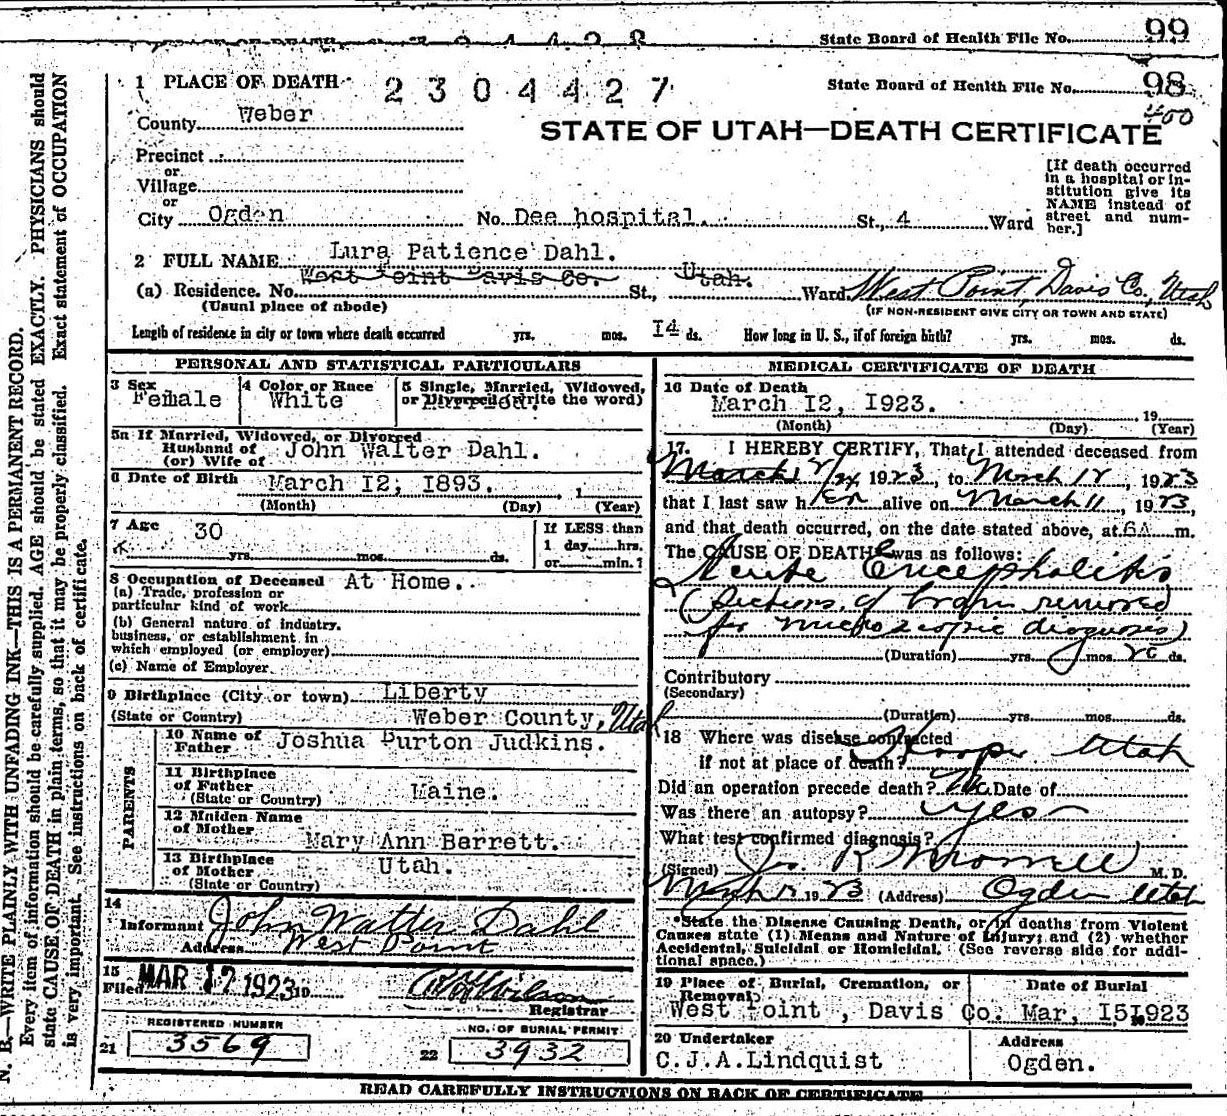 State Board of Health File No. 99
1 PLACE OF DEATH 2304427 State Board of Health File No. 98
400
County Weber
STATE OF UTAH—DEATH CERTIFICATE
Precinct
or
Village
or
City Ogden No. Dee hospital. St., 4 Ward
[If death occurred
in a hospital or in-
stitution give its
NAME instead of
street and num-
ber.]
2 FULL NAME Lura Patience Dahl.
West Point Davis Co. Utah.
(a) Residence. No. St., Ward. West Point, Davis Co., Utah
(Usual place of abode) (IF NON-RESIDENT GIVE CITY OR TOWN AND STATE)
Length of residence in city or town where death occurred yrs. mos. I4 ds. How long in U. S., if of foreign birth? yrs. mos. ds.
PERSONAL AND STATISTICAL PARTICULARS
3 Sex Female
4 Color or Race White
5 Single, Married, Widowed,
or Divorced (write the word)
Married.
5a If Married, Widowed, or Divorced
Husband of
(or) Wife of John Walter Dahl.
6 Date of Birth March I2, I893.
(Month) (Day) (Year)
7 Age 30
yrs. mos. ds.
If LESS than
1 day hrs.
or min.?
8 Occupation of Deceased At Home.
(a) Trade, profession or
particular kind of work
(b) General nature of industry,
business, or establishment in
which employed (or employer)
(c) Name of Employer
9 Birthplace (City or town) Liberty
(State or Country) Weber County, Utah
PARENTS
10 Name of
Father Joshua Purton Judkins.
11 Birthplace
of Father
(State or Country) Maine.
12 Maiden Name
of Mother
Mary Ann Berrett.
13 Birthplace
of Mother Utah.
(State or Country)
14
Informant John Walter Dahl
Address West Point
15
Filed MAR 17 1923 19
Registrar
REGISTERED NUMBER
21 3569
NO. OF BURIAL PERMIT
22 3932
MEDICAL CERTIFICATE OF DEATH
16 Date of Death
March I2, I923. 19
(Month) (Day) (Year)
17. I HEREBY CERTIFY, That I attended deceased from
March 1923, to March 12, 1923
that I last saw her alive on March 11, 1923,
and that death occurred, on the date stated above, at 6A m.
The CAUSE OF DEATH was as follows:
Acute Encephalitis
(Sections of brain removed
for microscopic diagnosis)
(Duration) yrs. mos. ds.
Contributory
(Secondary)
(Duration) yrs. mos. ds.
18 Where was disease contracted
if not at place of death? Hooper Utah
Did an operation precede death? No. Date of
Was there an autopsy? yes
What test confirmed diagnosis?
(Signed) M. D.
1923 (Address) Ogden Utah
*State the Disease Causing Death, or in deaths from Violent
Causes state (1) Means and Nature of Injury; and (2) whether
Accidental, Suicidal or Homicidal. (See reverse side for addi-
tional space.)
19 Place of Burial, Cremation, or
Removal
West Point , Davis Co.
Date of Burial
Mar, I5, 1923
20 Undertaker
C.J.A.Lindquist
Address
Ogden.
READ CAREFULLY INSTRUCTIONS ON BACK OF CERTIFICATE
N. B.—WRITE PLAINLY WITH UNFADING INK—THIS IS A PERMANENT RECORD.
Every item of information should be carefully supplied. AGE should be stated EXACTLY. PHYSICIANS should
state CAUSE OF DEATH in plain terms, so that it may be properly classified. Exact statement of OCCUPATION
is very important. See instructions on back of certificate.